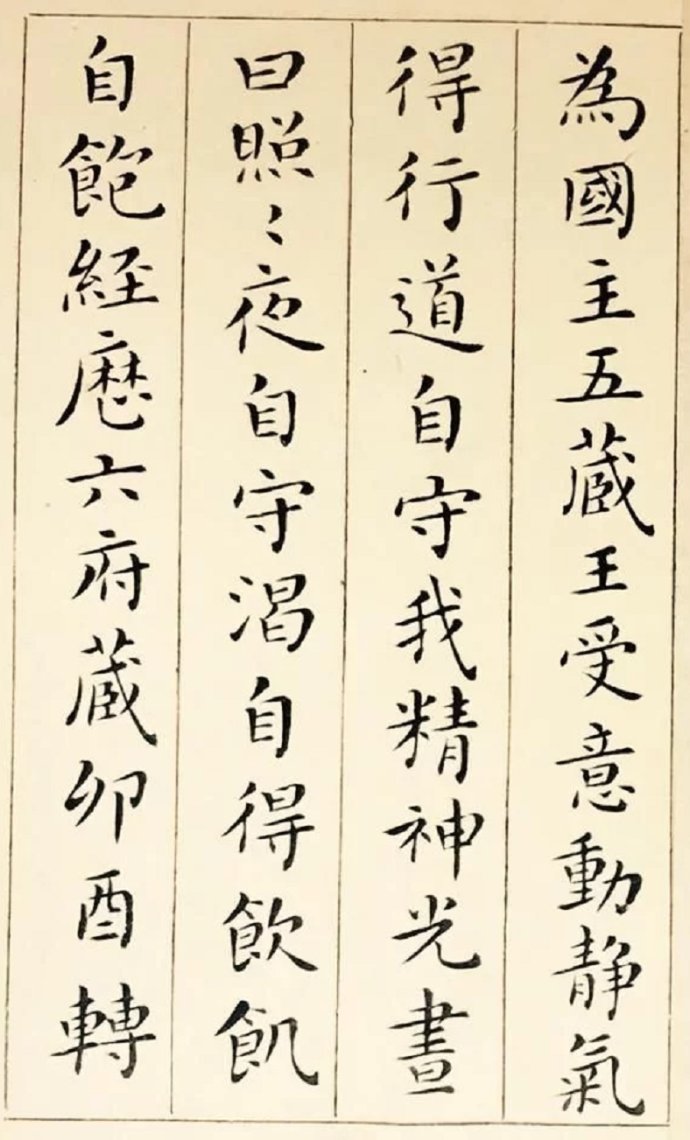 為國主五蔵王受意動静氣
得行道自守我精神光晝
日照〻夜自守渴自得飲飢
自飽経歴六府蔵卯酉轉